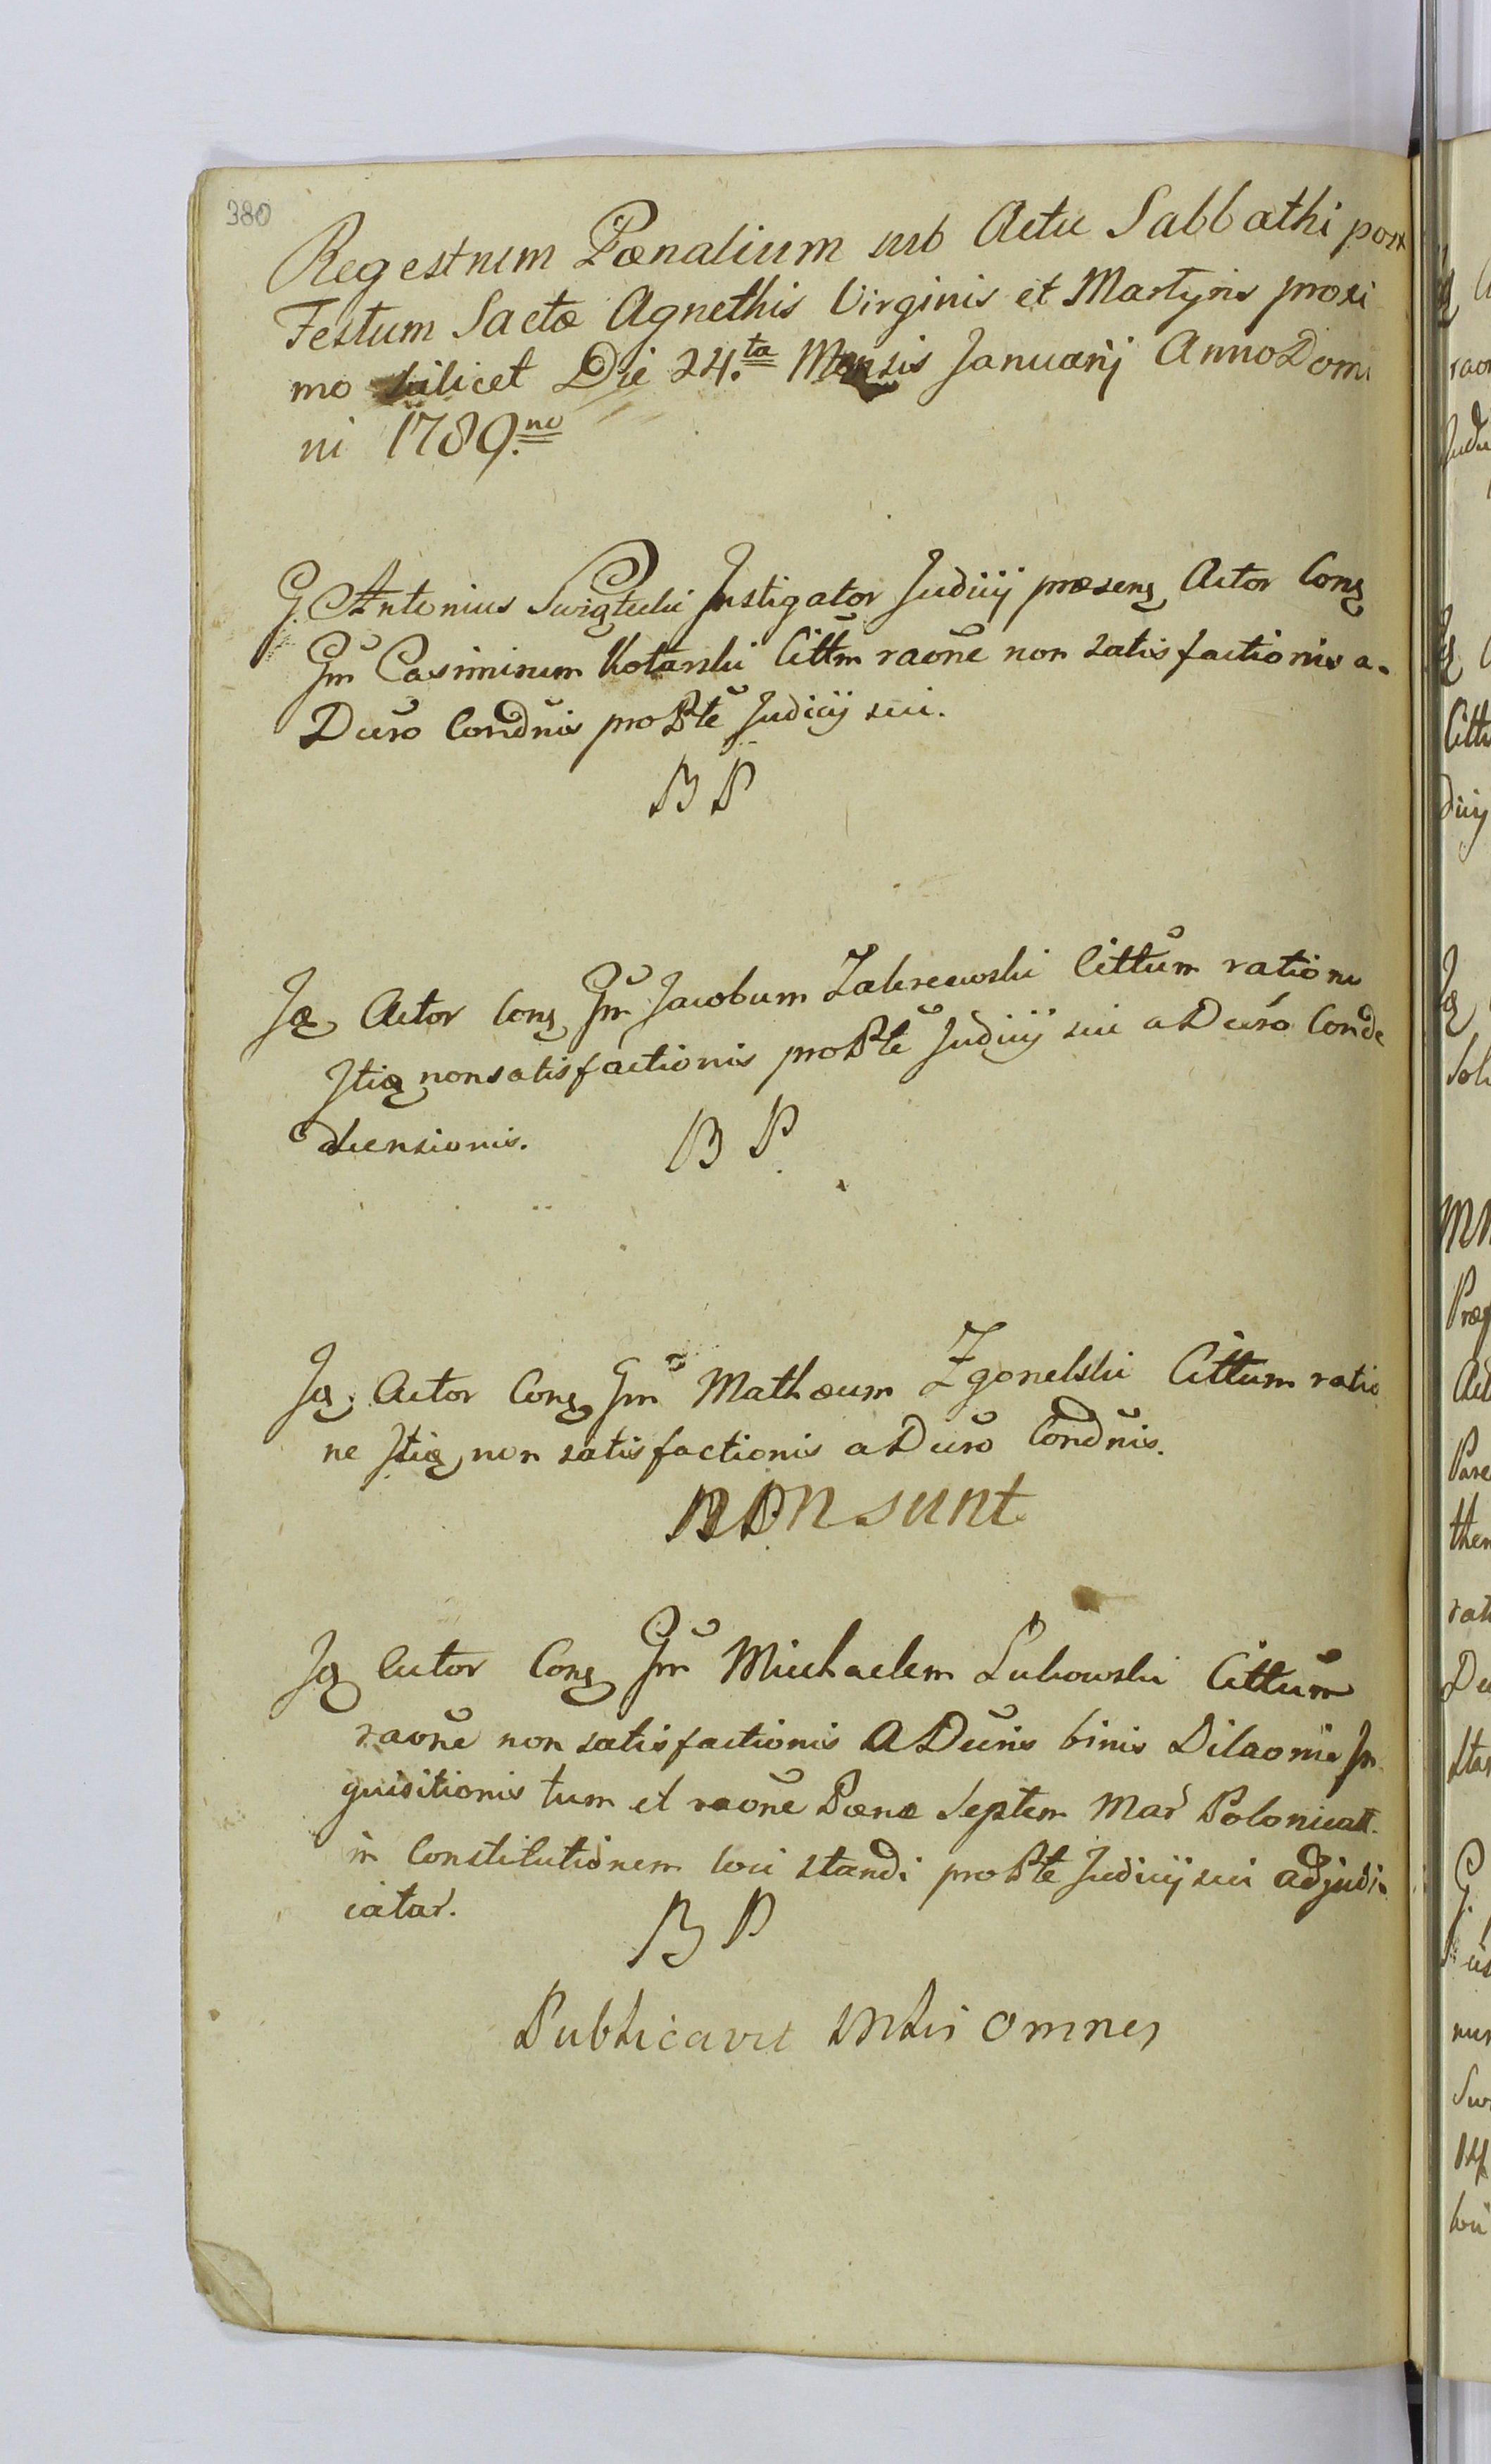 380
Regestrum Pœnalium sub Actu Sabbathi post
Festum Sactæ Agnethis Virginis et Martyris proxi
mo scilicet Die 24.ta Mensis Januarij Anno Domi
ni 1789.no
G. Antonius Swiątecki Instigator Judicij præsens Actor Cons
Gm Casimirum Kotarski Cittm raone non satisfactionis a.
Duro Condnis pro Pte Judicij sui.
B P
Jæ Actor Cons Gm Jacobum Zakrzewski Cittum ratione
Itiæ non satisfactionis pro Pte Judicij sui a Duro Conde
scensionis.
B P
Jæ Actor Cons Gm Mathæum Zgonelski Cittum ratio
ne Itiæ non satisfactionis a Duro Condnis.
non sunt
Jæ Actor Cons Gm Michaelem Lukowski Cittum
raone non satisfactionis a Duris binis Dilaonis In
quisitionis tum et raone Pœnæ Septem Mar Polonicall.
in Constitutionem loci standi pro Pte Judicij sui adjudi
catar.
B P
Publicavit omnes